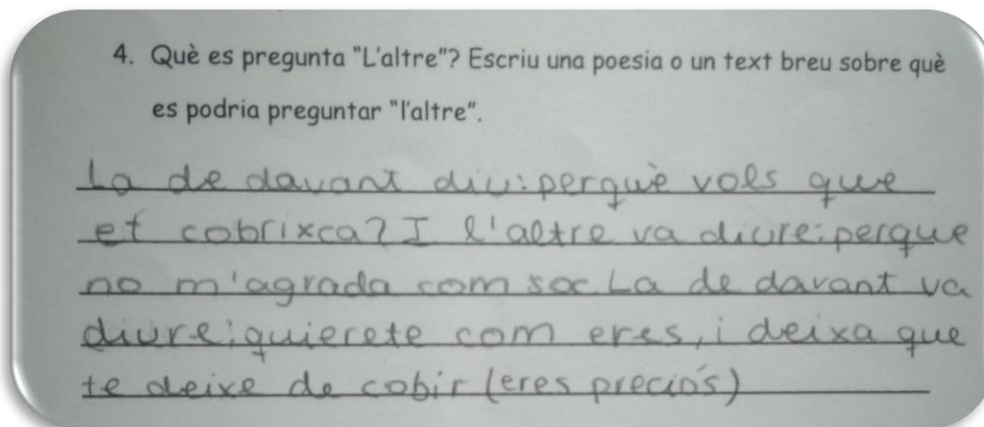 4. Què es pregunta "L'altre"? Escriu una poesia o un text breu sobre què
es podria preguntar "l'altre".
La de davant diu: perquè vols que
et cobrixca? I l'altre va diure: perque
no m'agrada com soc. La de davant va
diure: quierete com eres, i deixa que
te deixe de cobir (eres preciós)